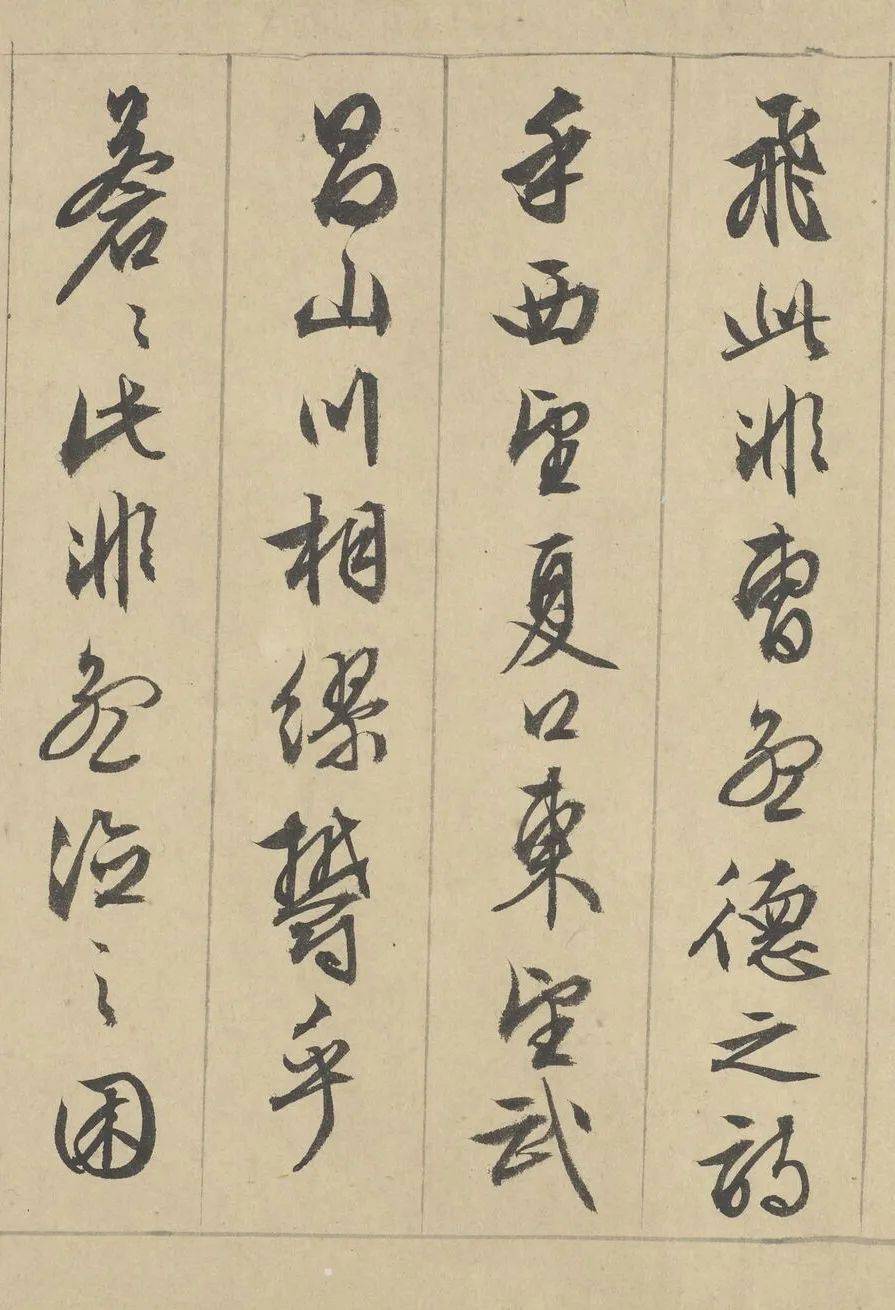 飛此非曹孟德之詩
乎西望夏口東望武
昌山川相繆鬱乎
蒼〻此非孟德之困